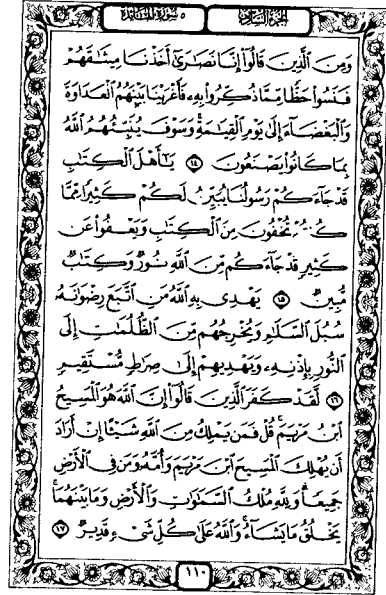 ٥ سورة المائدة
الجزء السادس
وَمِنَ الَّذِينَ قَالُوا إِنَّا نَصَارَىٰ أَخَذْنَا مِيثَاقَهُمْ
فَنَسُوا حَظًّا مِّمَّا ذُكِّرُوا بِهِ فَأَغْرَيْنَا بَيْنَهُمُ الْعَدَاوَةَ
وَالْبَغْضَاءَ إِلَىٰ يَوْمِ الْقِيَامَةِ وَسَوْفَ يُنَبِّئُهُمُ اللَّهُ
بِمَا كَانُوا يَصْنَعُونَ ١٤ يَا أَهْلَ الْكِتَابِ
قَدْ جَاءَكُمْ رَسُولُنَا يُبَيِّنُ لَكُمْ كَثِيرًا مِّمَّا
كُنتُمْ تُخْفُونَ مِنَ الْكِتَابِ وَيَعْفُوا عَن
كَثِيرٍ قَدْ جَاءَكُم مِّنَ اللَّهِ نُورٌ وَكِتَابٌ
مُّبِينٌ ١٥ يَهْدِي بِهِ اللَّهُ مَنِ اتَّبَعَ رِضْوَانَهُ
سُبُلَ السَّلَامِ وَيُخْرِجُهُم مِّنَ الظُّلُمَاتِ إِلَى
النُّورِ بِإِذْنِهِ وَيَهْدِيهِمْ إِلَىٰ صِرَاطٍ مُّسْتَقِيمٍ
١٦ لَّقَدْ كَفَرَ الَّذِينَ قَالُوا إِنَّ اللَّهَ هُوَ الْمَسِيحُ
ابْنُ مَرْيَمَ قُلْ فَمَن يَمْلِكُ مِنَ اللَّهِ شَيْئًا إِنْ أَرَادَ
أَن يُهْلِكَ الْمَسِيحَ ابْنَ مَرْيَمَ وَأُمَّهُ وَمَن فِي الْأَرْضِ
جَمِيعًا وَلِلَّهِ مُلْكُ السَّمَاوَاتِ وَالْأَرْضِ وَمَا بَيْنَهُمَا
يَخْلُقُ مَا يَشَاءُ وَاللَّهُ عَلَىٰ كُلِّ شَيْءٍ قَدِيرٌ ١٧
١١٠